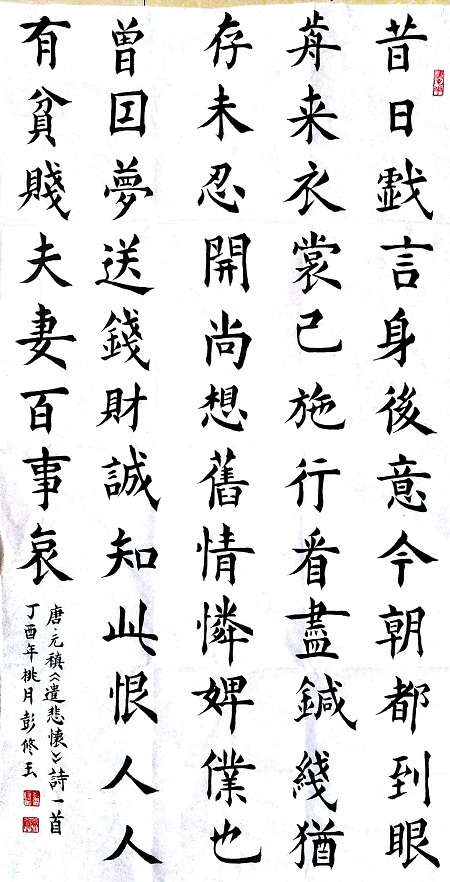 昔日戱言身後意今朝都到眼
歬来衣裳已施行看盡鍼綫猶
存未忍開尚想舊情憐婢僕也
曾囙夢送錢財誠知此恨人人
有貧賤夫妻百事哀
唐·元稹《遣悲懷》詩一首
丁酉年桃月彭修玉